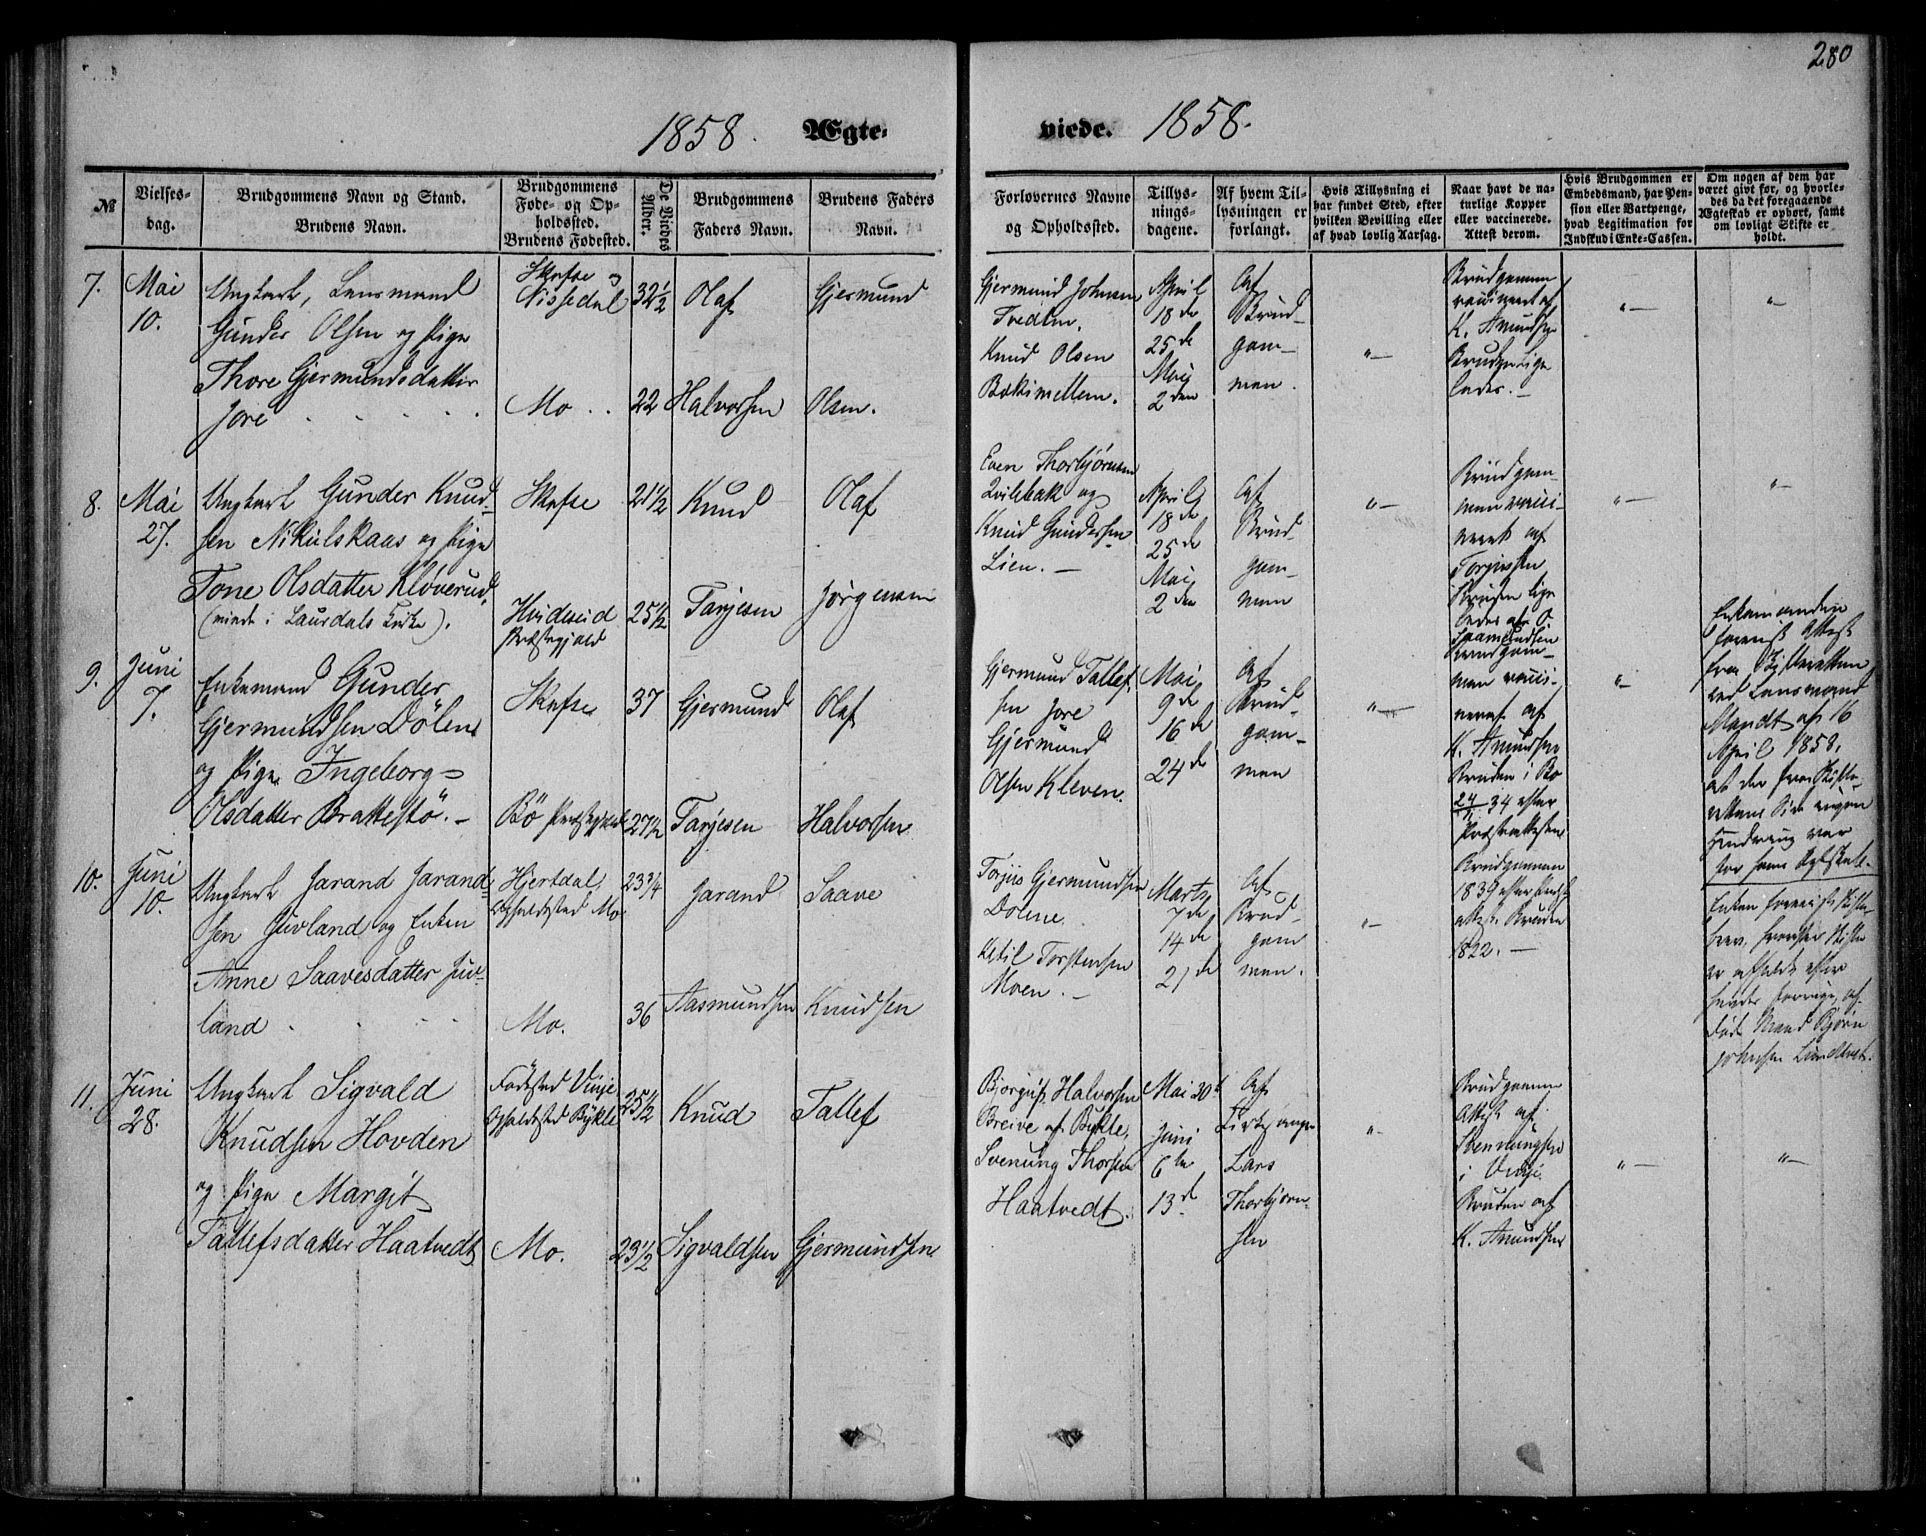 280
1858. Ægte-
viede. 1858.
№
Vielses-
dag.
Brudgommens Navn og Stand.
Brudens Navn.
Brudgommens
Føde- og Op-
holdssted.
Brudens Fødested.
De Viedes
Alder.
Brudgommens
Faders Navn.
Brudens Faders
Navn.
Forlovernes Navne
og Opholdssted.
Tillys-
nings-
dagene.
Af hvem Til-
lysningen er
forlangt.
Hvis Tillysning ei
har fundet Sted, efter
hvilken Bevilling eller
af hvad lovlig Aarsag.
Naar havt de na-
turlige Kopper
eller vaccinerede.
Attest derom.
Hvis Brudgommen er
Embedsmand, har Pen-
sion eller Vartpenge,
hvad Legitimation for
Indskud i Enke-Cassen.
Om nogen af dem har
været gift før, og hvorle-
des da det foregaaende
Ægteskab er ophørt, samt
om lovligt Skifte er
holdt.
7.
Mai
10.
Ungkarl, Lensmand
Gunder Olsen og Pige
Thore Gjermundsdatter
Jore
Skafse og
Nissedal
Mo
32½
22
Olaf
Halvorsen
Gjermund
Olsen.
Gjermund Johnsen
Tvedten.
Knud Olsen
Bækimellem.
April
18de
25de
Mai
2den
Af
Brud-
gom-
men.
"
Brudgommen
vaccineret af
K. Amundsen
Bruden lige
ledes.
"
"
8.
Mai
27.
Ungkarl Gunder Knud-
sen Nikulskaas og Pige
Tone Olsdatter Kløverud,
(viede i Laurdals Kirke).
Skafse
Hvideseid
Præstegjæld
21½
25½
Knud
Tarjesen
Olaf
Jørgensen
Even Thorbjørnsen
Qvilebak og
Knud Gundersen
Lien.
April
18de
25de
Mai
2den
Af
Brud-
gom-
men
"
Brudgom-
men vacci-
neret af
Torjussen
Bruden lige
ledes af O.
Saamundsen
"
"
9.
Juni
7.
Enkemand Gunder
Gjermundsen Dölen
og Pige Ingeborg
Olsdatter Brattestö.
Skafse
Bö Præstegjæld
37
27½
Gjermund
Tarjesen
Olaf
Halvorsen
Gjermund Tallef-
sen Jore
Gjermund
Olsen Kleven.
Mai
9de
16de
24de
Af
Brud-
gom-
men
"
Brudgom-
men vacci-
neret af
K. Amundsen
Bruden i Bö
34 efter
Præsteattesten
"
Enkemanden
foreviist Attest
fra Skifteretten
ved Lensmand
Mandt af 16
April 1858,
at der fra Skifte-
rettens Side ingen
Hindring var
for hans Ægteskab.
10.
Juni
10.
Ungkarl Jarand Jarand-
sen Juvland og Enken
Anne Saavesdatter Juv-
land
Hjertdal,
Opholdssted Mo.
Mo.
23¾
36
Jarand
Aasmundsen
Saave
Knudsen
Torjus Gjermundsen
Dolene.
Ketil Torstensen
Moen.
Marts
7de
14de
21de
Af
Brud-
gom
men.
"
Brudgommen
1839 efter
attest. Bruden
1822.
Enken foreviist Skifte-
brev, hvorefter Skifte
er afholdt efter
hendes forrige, af-
døde Mand Bjørn
Johnsen Lundtveit.
11.
Juni
28.
Ungkarl Sigvald
Knudsen Hovden
og Pige Margit
Tallefsdatter Haatvedt
Fødested Vinje
Opholdssted Bykle
Mo.
25½
23½
Knud
Sigvaldsen
Tallef
Gjermundsen
Bjorguf Halvorsen
Breive af Bykle,
Svenung Thorsen
Haatvedt.
Mai 30te
Juni
6te
13de
Af
Kirkesanger
Lars
Thorbjørn-
sen
"
Brudgommens
Attest af
Svennungsen
i Vinje.
Bruden af
K. Amundsen
"
"